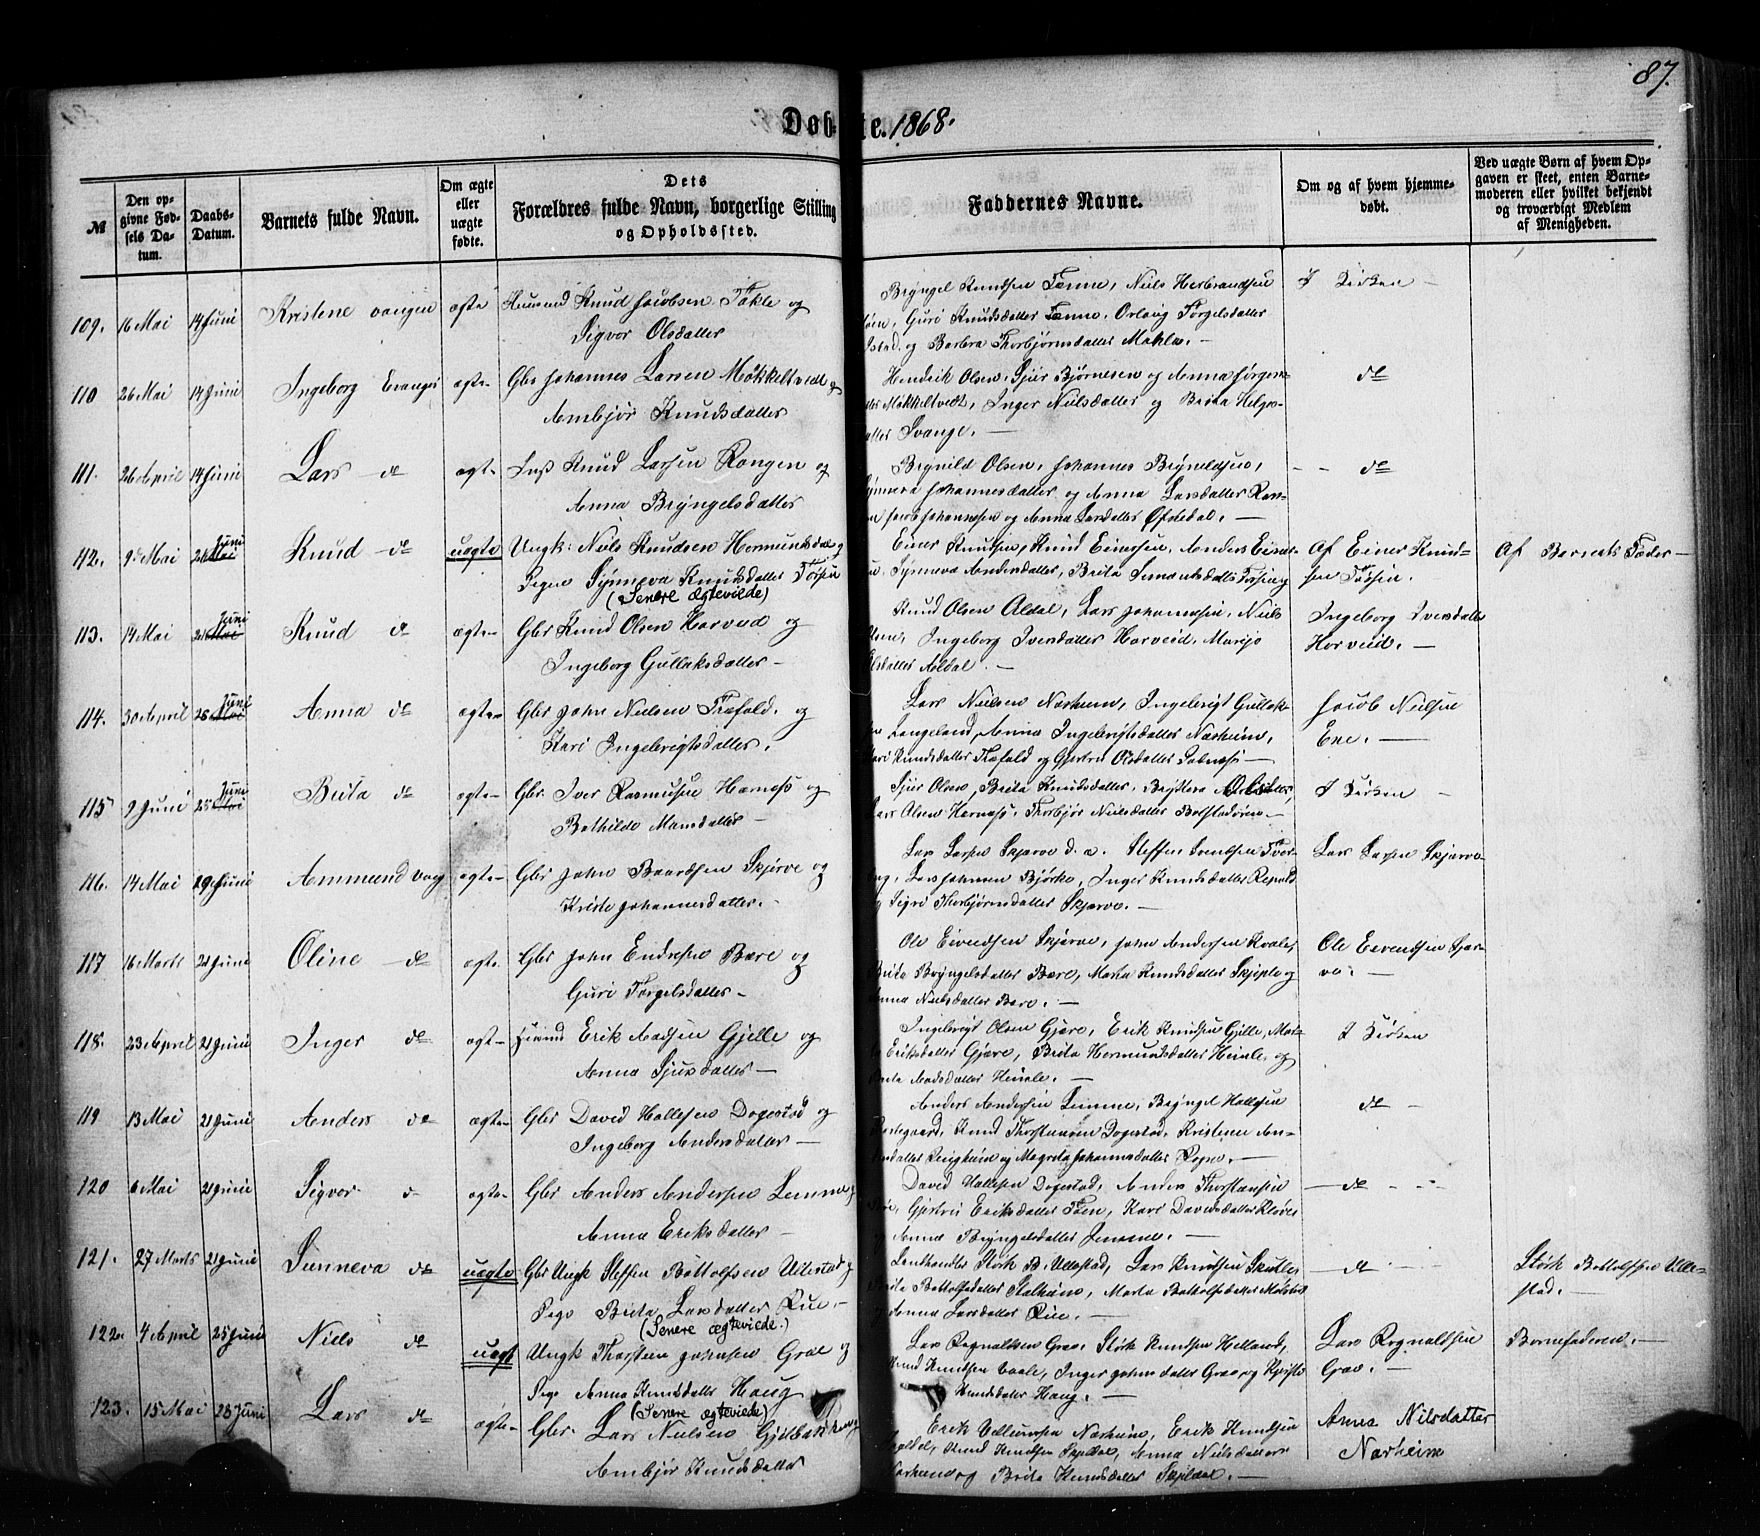 87.
Døbte. 1868.
№
Den opgivne Fødsels Datum.
Daabs-Datum.
Barnets fulde Navn.
Om ægte eller uægte fødte.
Dets Forældres fulde Navn, borgerlige Stilling og Opholdssted.
Faddernes Navne.
Om og af hvem hjemmedøbt.
Ved uægte Børn af hvem Opgaven er skeet, enten Barnemoderen eller hvilket bekjendt og troværdigt Medlem af Menigheden.
109. 16 Mai 14 Juni Kristene vangen ægte Huusmd Knud Jacobsen Tökle og
Sigvor Olsdatter
Bryngel Knudsen Tenne, Niels Herbrandsen
Guri Knudsdatter Tenne, Orlaug Torgelsdatter
og Barbra Thorbjørnsdatter Mahle. —
I Kirken —
110 26 Mai 14 Juni Ingeborg Evanger ægte Gbr Johannes Larsen Mökkeltvedt og
Ambjör Knudsdatter
Hendrik Olsen, Sjur Björnesen og Anna Jörgens-
Mökkeltvedt, Inger Nielsdatter og Brita Helges-
datter Evange. —
do
111. 26 April 14 Juni Lars do ægte Knud Larsen Rongen og
Anna Bryngelsdatter
Brynild Olsen, Johannes Brynildsen,
Synneva Johannesdatter og Anna Larsdatter Ron-
Jacob Johannesen og Anna Larsdatter Öfstedal. —
do
112. 9de Mai 21 Mai Juni Knud do uægte Ungk: Niels Knudsen Hermunsdal og
Pigen Synneva Knudsdatter Tössen
(Senere ægteviede)
Einer Knudsen, Knud Einersen, Anders Einer-
Synneva Andersdatter, Brita
Af Einer Knud-
sen Tössen.
Af Barnets Fader —
113. 14 Mai 21 Mai Juni Knud do ægte Gbr Knud Olsen Horveid og
Ingeborg Gullaksdatter —
Knud Olsen Aldal, Lars Johannesen, Niels
Olsen, Ingeborg Iversdatter Horveid, Marijo
Olsdatter Aldal. —
Ingeborg Iversdatter
Horveid. —
114. 30 April 25 Mai Juni Anna do ægte Gbr John Nielsen Træfald. og
Kari Ingebrigtsdatter.
Lars Nielsen Nærheim, Ingebrigt Gullak-
Langeland, Anna Ingebrigtsdatter Nærheim,
Kari Knudsdatter Træfald og Gjertru Olsdatter
Jacob Nielsen
Ene. —
115 9 Juni 25 Mai Juni Brita do ægte Gbr. Iver Rasmusen Hernæss og
Bothilde Mansdatter —
Sjur Olsen, Brita Knudsdatter,
Lars Olsen Hernæss, Thorbjör Nielsdatter Bolstadören —
I Kirken
116. 14 Mai 29 Juni Ammund vang ægte Gbr John Baardsen Skjerve og
Kristi Johannesdatter. —
Lars Larsen Skjerve d. æ. Steffen Svendsen
Lars Johnsen Björke, Inger Knudsdatter
og Sigri Thorbjörnsdatter Skjerve. —
Lars Larsen Skjerve
117 16 Marts 21 Juni Oline do ægte Gbr John Endresen Bære og
Guri Torgelsdatter —
Ole Eivendsen Skjerve, John Andersen Kvale,
Brita Bryngelsdatter Bære, Marta Knudsdatter Skjeple og
Anna Nielsdatter Bære. —
Ole Eivendsen Skjer-
ve. —
118. 23 April 21 Juni Inger do ægte Erik Madsen Gjelle og
Anna Sjursdatter —
Ingebrigt Olsen Gjære, Erik Knudsen Gjelle, Mar-
Eriksdatter Gjære, Brita Hermundsdatter Heimle, og
Brita Madsdatter Himle. —
I Kirken
119 13 Mai 21 Juni Anders do ægte Gbr David Hallesen Dogestad og
Ingeborg Andersdatter —
Anders Andersen Lemme, Bryngel Hallesen
Knud Thorstensen Dogestad, Kristense An-
og Magreta Johannesdatter Rogne. —
do
120 6 Mai 21 Juni Sigvor do ægte Gbr Anders Andersen Lemme og
Anna Eriksdatter —
David Hallesen Dogestad, Anders Thorstensen
Gjertru Eriksdatter Tven, Kari Davidsdatter Klöve
Anna Bryngelsdatter —
do
121. 27 Marts 21 Juni Sunneva do uægte Ungk Steffen Bottolfsen Ullestad og
Pige Brita Larsdatter Rue —
(Senere ægteviede.)
Störk B. Ullestad, Lars Knudsen
Brita Bottolfsdatter Stalheim, Marta Bottolfsdatter
Anna Larsdatter Rue. —
do
Störk Bottolfsen Ulle-
stad. —
122. 4 April 25 Juni Niels do uægt Ungk Thorsten Johnsen Græe og
Pige Anna Knudsdatter Haug
(Senere ægteviede)
Lars Rognaldsen Græe, Störk Knudsen Helland,
Knud Knudsen Vaale, Inger Johnsdatter Græe, og Kristi
Knudsdatter Haug. —
Lars Rognaldsen
Græe. —
Barnefaderen. —
123. 15 Mai 28 Juni Lars do ægte Gbr. Lars Nielsen
Ambjör Knudsdatter
Erik Villumsen Nærheim, Erik Knudsen
Skjeldal, Knud Knudsen Skjeldal, Anna Nielsdatter
Nærheim og Brita Knudsdatter Skjeldal. —
Anna Nilsdatter
Nærheim